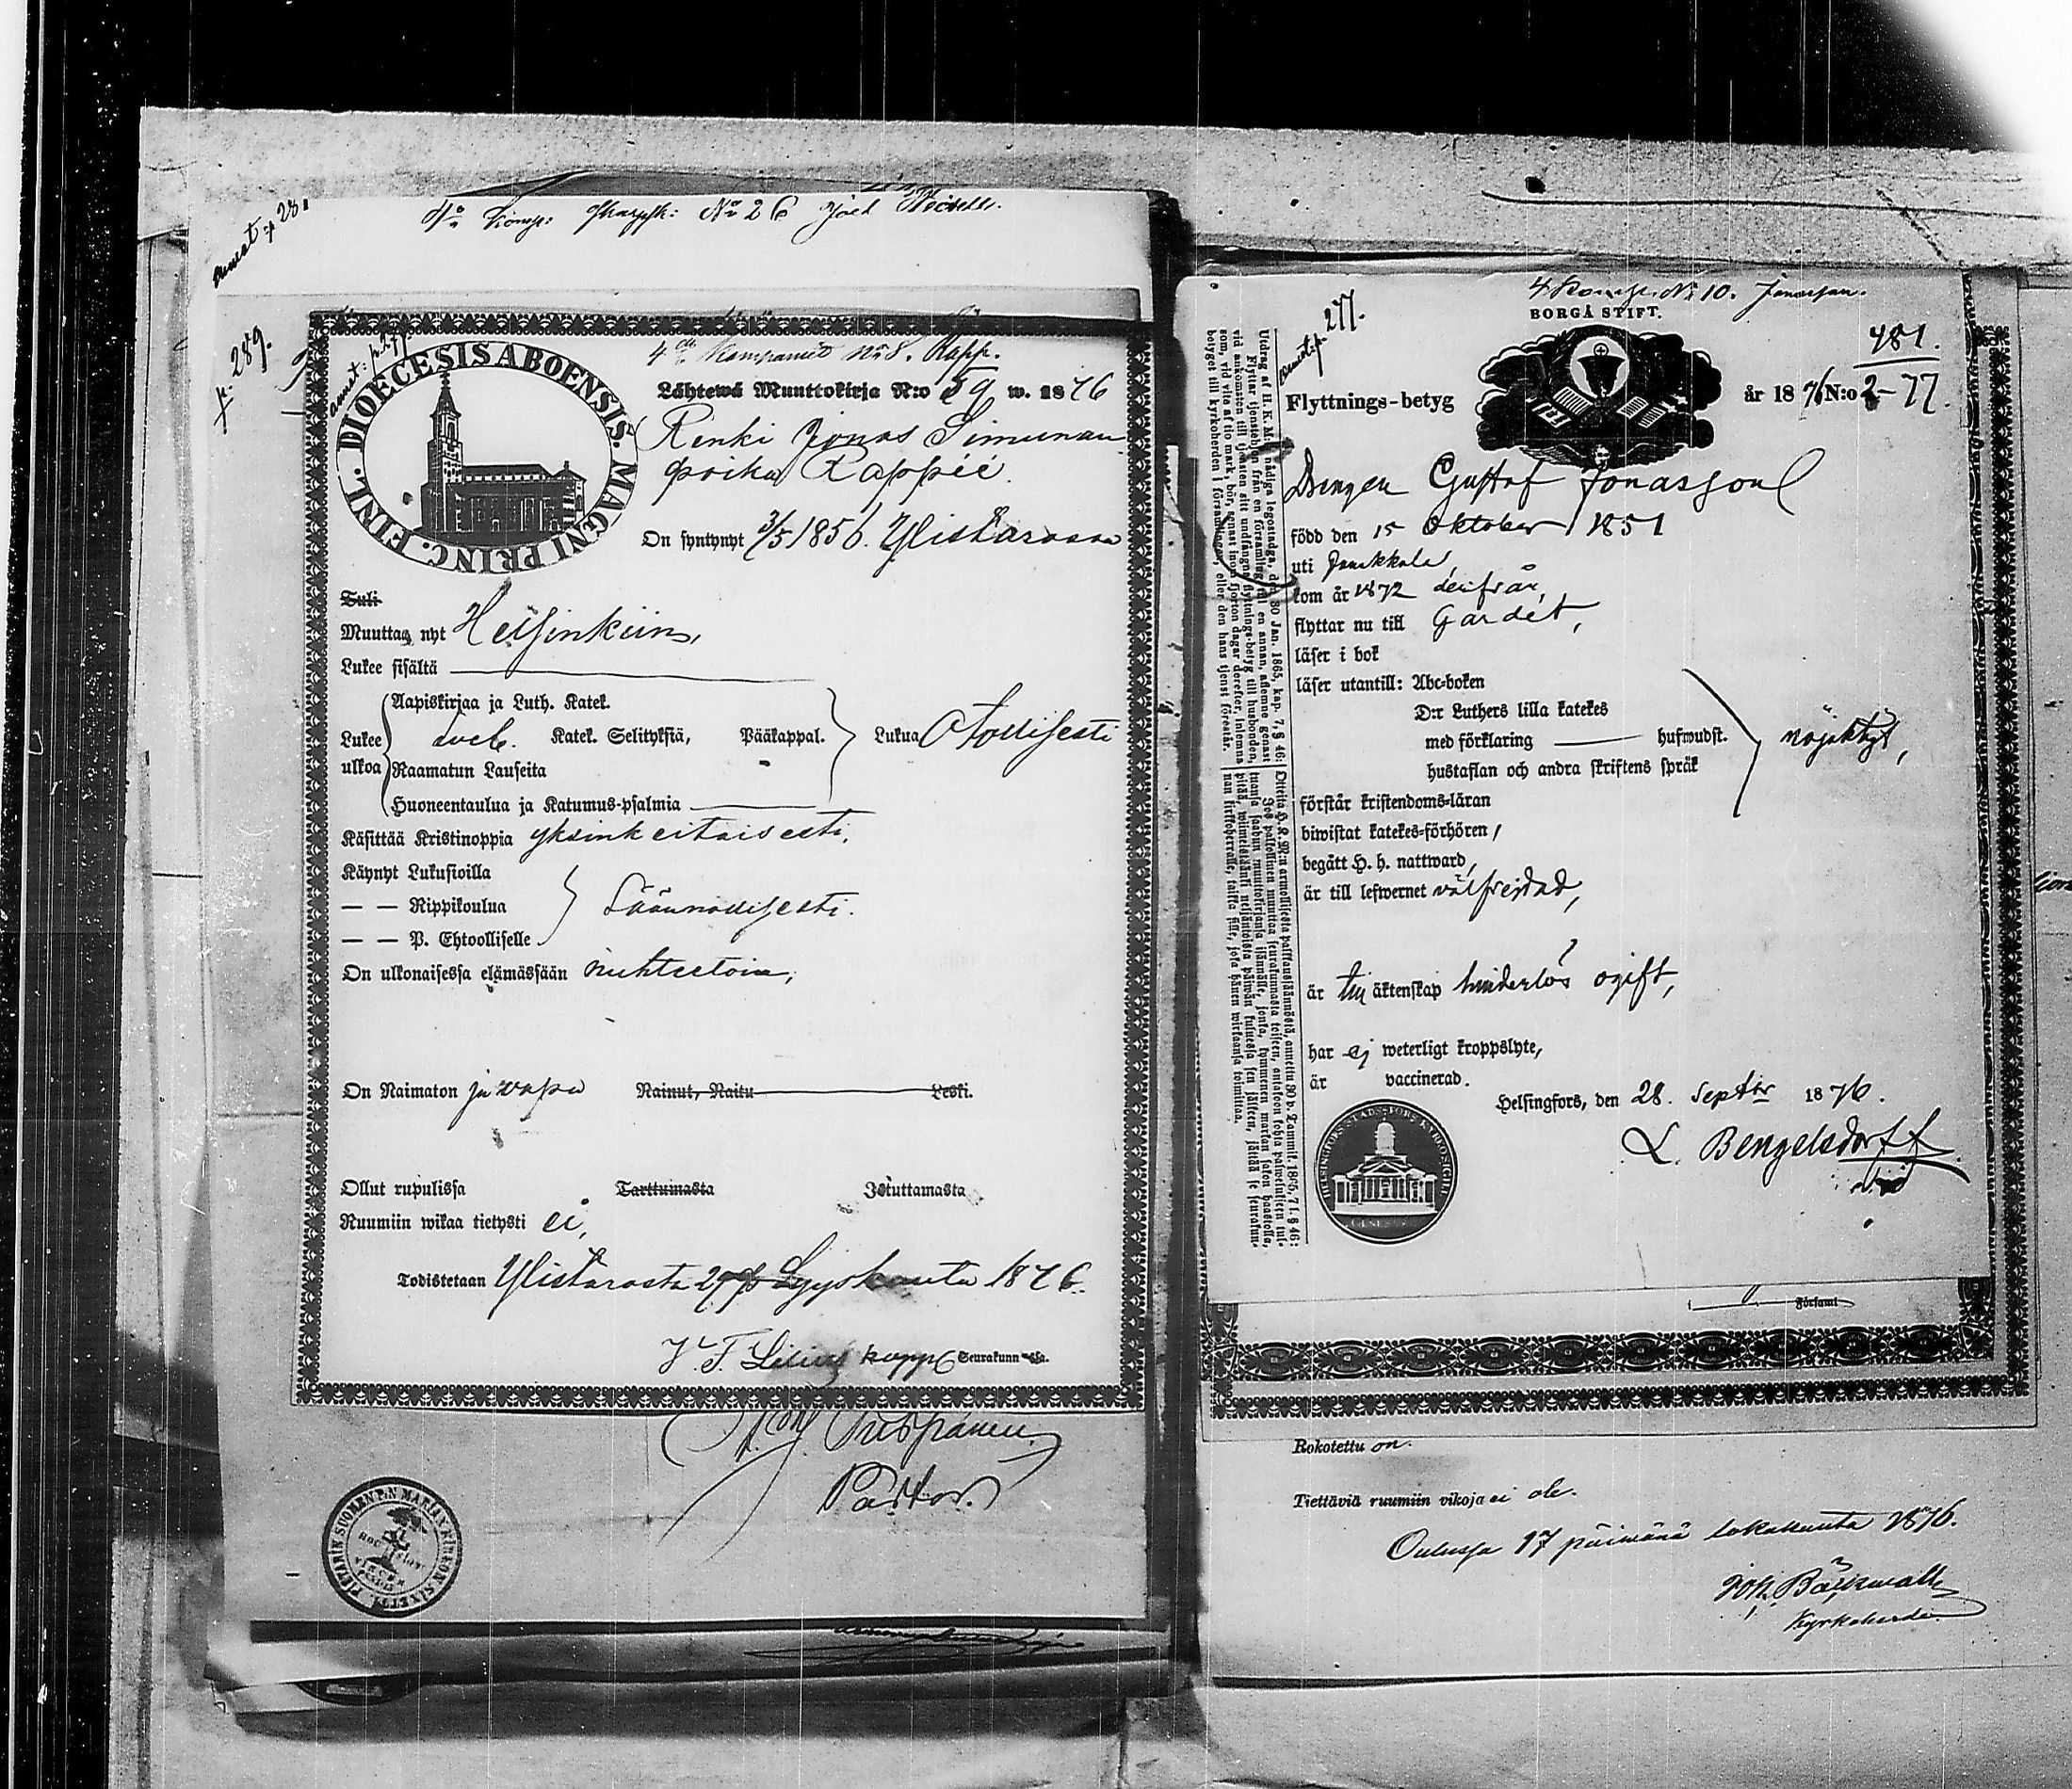 No 26
p. 289.
DIOECESIS ABOENSIS. MAGNI PRINC. FINL.
4de Kompaniet No 8. Rapp.
Lähtewä Muuttokirja N:o 59 w. 1876
Renki Jonas Simunan
poika Rappii.
On syntynyt 3/5 1856. Ylistarossa
Tuli
Muuttaa nyt Helsinkiin,
Lukee sisältä
Aapiskirjaa ja Luth. Katek.
Lukee ulkoa Katek. Selityksiä, Pääkappal. Lukua
Raamatun Lauseita
Huoneentaulua ja Katumus-psalmia
Käsittää Kristinoppia yksinkertaisesti.
Käynyt Lukusioilla
— — Rippikoulua Säännöllisesti.
— — P. Ehtoolliselle
On ulkonaisessa elämässään nuhteetoin,
On Naimaton ja vapa Nainut, Naitu Leski.
Ollut rupulissa Tarttumasta Istuttamasta
Ruumiin wikaa tietysti ei,
Todistetaan Ylistarosta 27 p Syyskuuta 1876.
Seurakunnassa.
Pastor.
PIETARIN SUOMEN P:N MARIAN KIRKON SINETTI
277.
4 Komp. No 10. Jonasson.
BORGÅ STIFT.
481.
Flyttnings-betyg år 1876 N:o 2-77.
Drengen Gustaf Jonasson
född den 15 Oktober 1851
uti Janakkala,
kom år 1872 derifrån,
flyttar nu till Gardet,
läser i bok
läser utantill: Abc-boken
D:r Luthers lilla katekes
med förklaring hufwudst. nöjaktigt,
hustaflan och andra skriftens språk
förstår kristendoms-läran
biwistat katekes-förhören,
begått H. h. nattward,
är till lefwernet välfrejdad,
är till äktenskap hinderlös ogift,
har ej weterligt kroppslyte,
är vaccinerad.
Helsingfors, den 28. Septbr 1876.
L. Bengelsdorff
Utdrag af H. K. M:s nådiga legostadga, den 30 Jan. 1865, kap. 7, § 46:
Flyttar tjenstehjon från en församling till en annan, aflemne genast
vid ankomsten till tjensten sitt undfångna flyttnings-betyg till husbonden,
som, vid vite af tio mark, bör, senast inom fjorton dagar derefter, inlemna
betyget till kyrkoherden i församlingen, eller den hans tjenst förestår.
Församl
Rokotettu on.
Tiettäviä ruumiin vikoja ei ole.
Oulussa 17 päivänä lokakuuta 1876.
Kyrkoherde